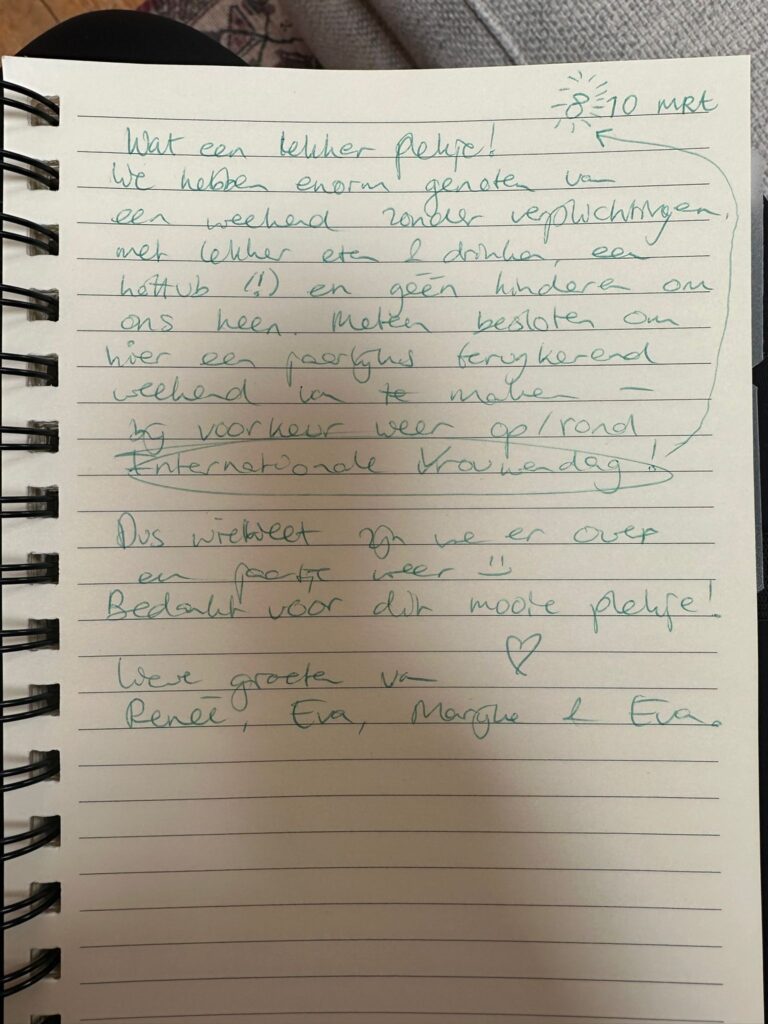 8-10 MRt
Wat een lekker plekje!
We hebben enorm genoten van
een weekend zonder verplichtingen,
met lekker eten & drinken, een
hottub (!) en géén kinderen om
ons heen. Meteen besloten om
hier een jaarlijks terugkerend
weekend van te maken –
bij voorkeur weer op/rond
Internationale Vrouwendag!
Dus wieweet zijn we er over
een jaartje weer :)
Bedankt voor dit mooie plekje!
♡
Lieve groeten van
Reneé, Eva, Marijke & Eva.